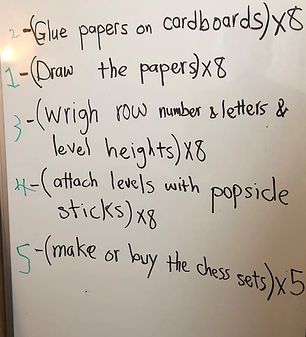 2-(Glue papers on cardboards)x8
1-(Draw the papers)x8
3-(wrigh row number & letters &
level heights)x8
4-(attach levels with popsicle
sticks)x8
5-(make or buy the chess sets)x5